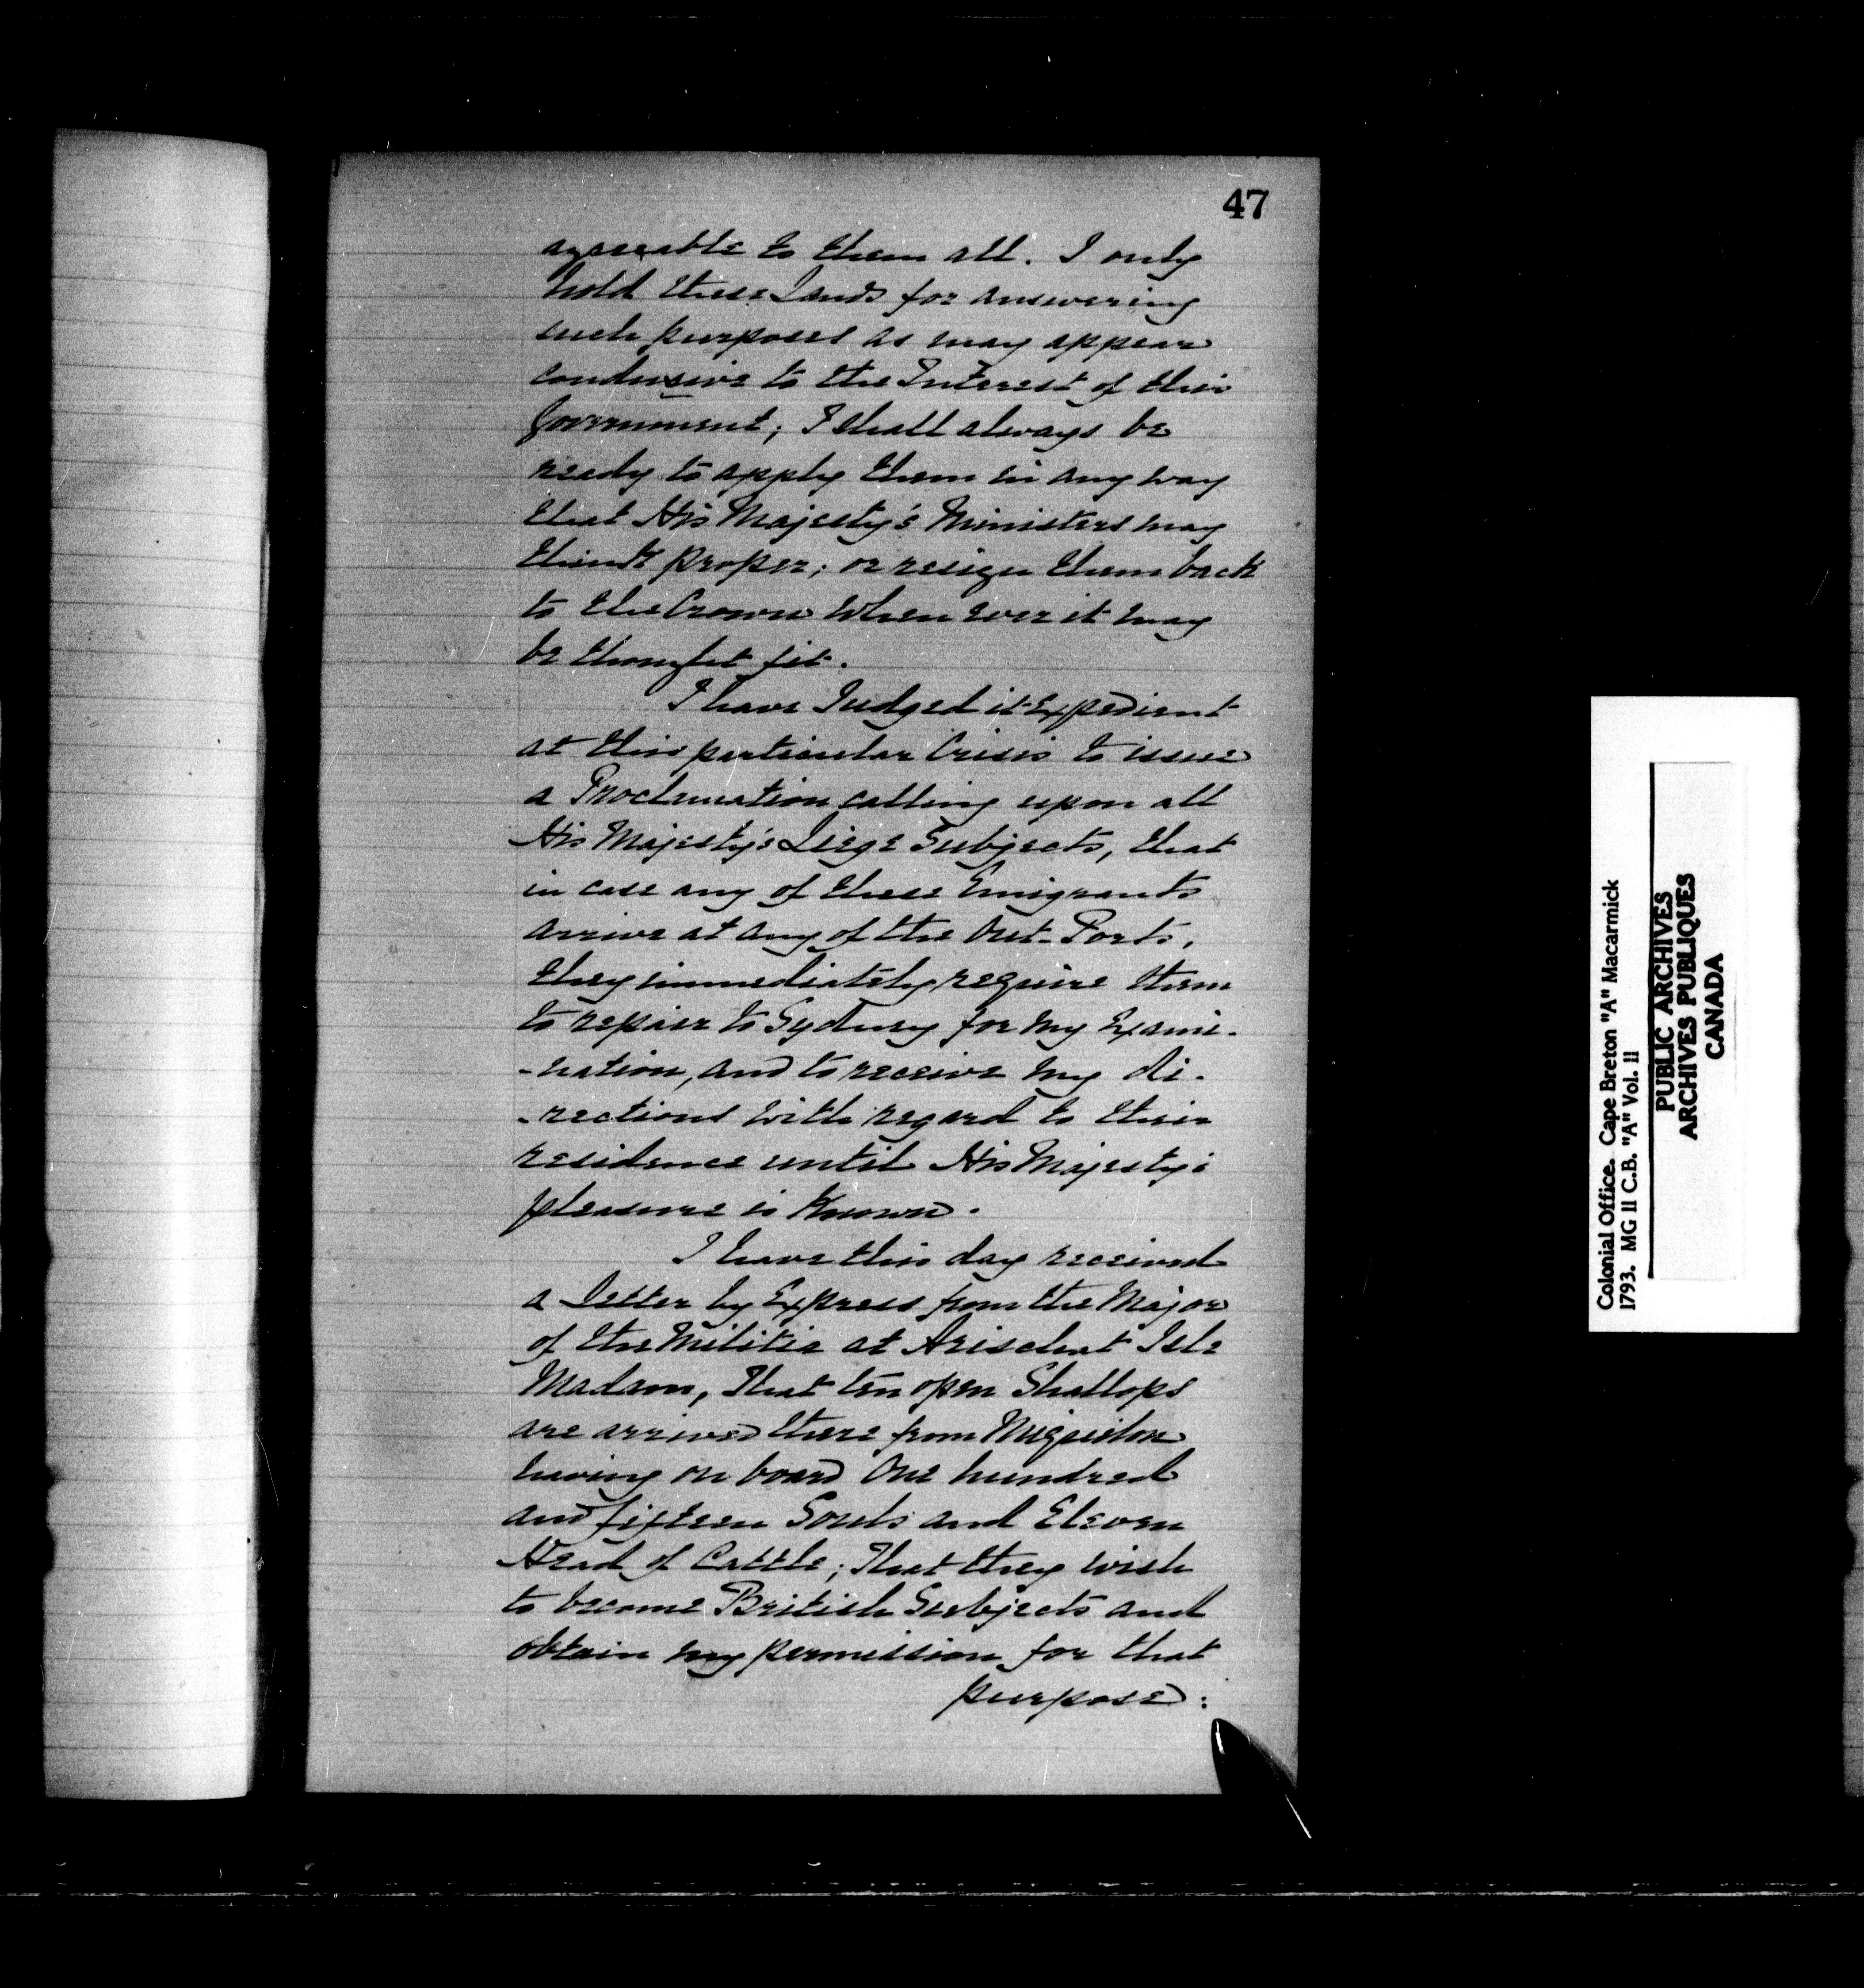 47
agreeable to them all. I only
hold these Lands for answering
such purposes as may appear
conducive to the Interest of this
Government; I shall always be
ready to apply them in any way
that His Majesty's Ministers may
think proper; or resign them back
to the Crown when ever it may
be thought fit.
I have Judged it Expedient
at this particular Crisis to issue
a Proclamation calling upon all
His Majesty's Liege Subjects, that
in case any of these Emigrants
arrive at any of the Out-Ports,
they immediately require them
to repair to Sydney for my Exami-
-nation, and to receive my di-
-rections with regard to their
residence until His Majesty's
pleasure is known.
I have this day received
a letter by Express from the Major
of the Militia at Arischat Isle
Madam, That ten open Shallops
are arrived there from Miquelon
having on board One hundred
and fifteen Souls and Eleven
Head of Cattle; That they wish
to become British Subjects and
obtain my permission for that
purpose:
Colonial Office. Cape Breton "A" Macarmick
1793. MG 11 C.B. "A" Vol. 11
PUBLIC ARCHIVES
ARCHIVES PUBLIQUES
CANADA